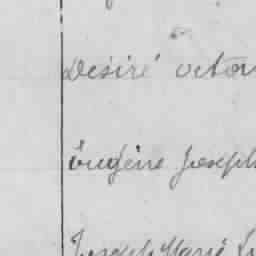 Désiré octav
Eugène Joseph
Joseph Marie